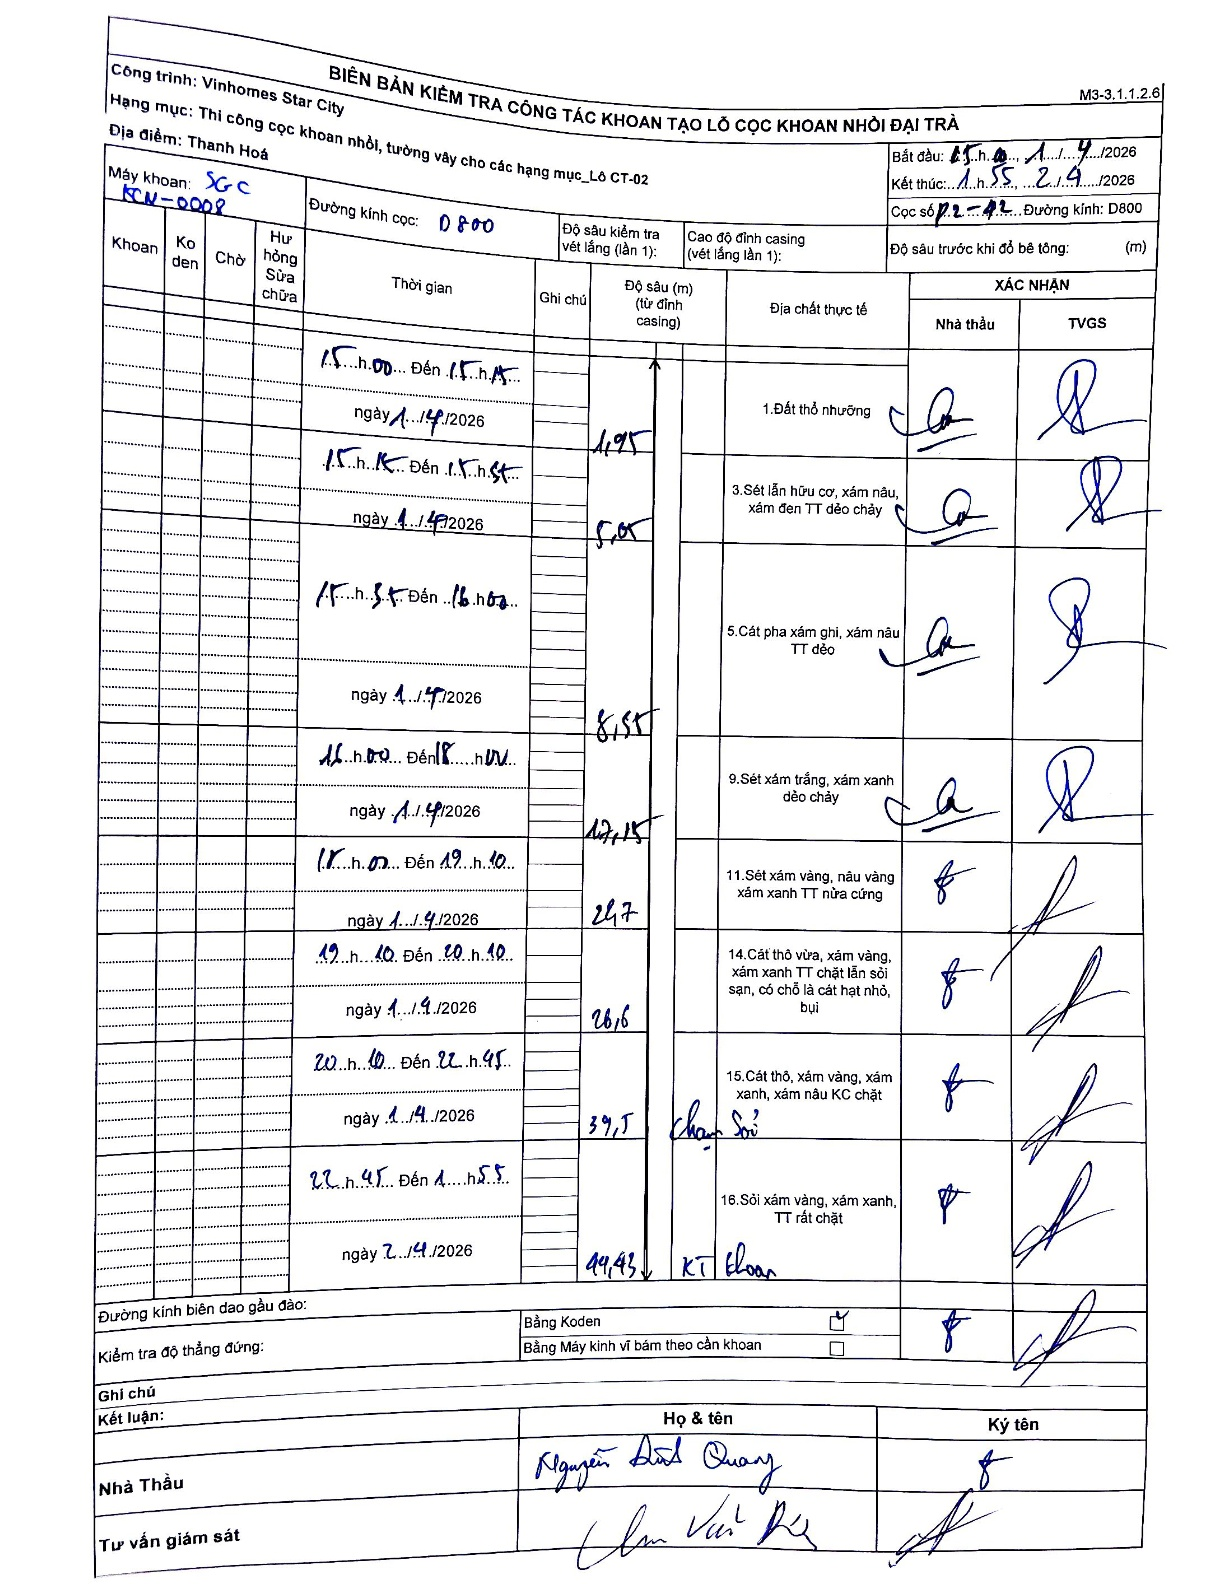 BIÊN BẢN KIỂM TRA CÔNG TÁC KHOAN TẠO LỖ CỌC KHOAN NHỒI ĐẠI TRÀ
M3-3.1.1.2.6
Công trình: Vinhomes Star City
Hạng mục: Thi công cọc khoan nhồi, tường vây cho các hạng mục_Lô CT-02
Địa điểm: Thanh Hoá
Bắt đầu: 15.h.00..., .1.../...4.../2026
Kết thúc: 1.h 55, ... 2./.4.../2026
Cọc số P2-... Đường kính: D800
Máy khoan: SGC
KCN-0008
Đường kính cọc: D800
Độ sâu kiểm tra vét lắng (lần 1):
Cao độ đỉnh casing (vét lắng lần 1):
Độ sâu trước khi đổ bê tông: (m)
Khoan
Ko den
Chờ
Hư hỏng Sửa chữa
Thời gian
Ghi chú
Độ sâu (m) (từ đỉnh casing)
Địa chất thực tế
XÁC NHẬN
Nhà thầu
TVGS
15...h.00... Đến .15.h.15...
ngày 1.../4/2026
1,95
1.Đất thổ nhưỡng
15..h.15.. Đến .15.h.35..
ngày .1.../4/2026
5,05
3.Sét lẫn hữu cơ, xám nâu, xám đen TT dẻo chảy
15...h.35 Đến ..16.h00...
ngày .1.../4/2026
8,55
5.Cát pha xám ghi, xám nâu TT dẻo
16..h.00... Đến 18.....h 00..
ngày .1./.4/2026
17,15
9.Sét xám trắng, xám xanh dẻo chảy
18....h.00... Đến 19...h.10..
ngày 1.../.4./2026
11.Sét xám vàng, nâu vàng xám xanh TT nửa cứng
19..h...10. Đến .20.h.10..
ngày 1.../.4./2026
26,6
14.Cát thô vừa, xám vàng, xám xanh TT chặt lẫn sỏi sạn, có chỗ là cát hạt nhỏ, bụi
20...h..10... Đến 22..h.45..
ngày .1../4./2026
39,5
Chạm Sỏi
15.Cát thô, xám vàng, xám xanh, xám nâu KC chặt
22.h.45. Đến 1....h55..
ngày 2../4./2026
44,43
KT khoan
16.Sỏi xám vàng, xám xanh, TT rất chặt
Đường kính biên dao gầu đào:
Kiểm tra độ thẳng đứng:
Bằng Koden
Bằng Máy kinh vĩ bám theo cần khoan
Ghi chú
Kết luận:
Họ & tên
Ký tên
Nhà Thầu
Nguyễn Đình Quang
Tư vấn giám sát